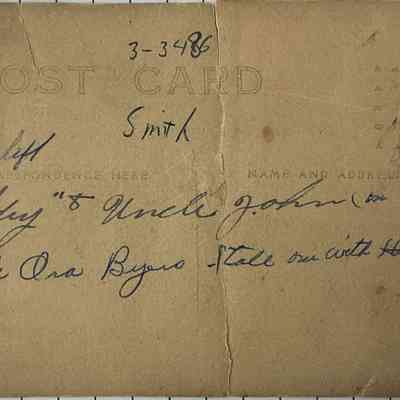 3-3486
POST CARD
Smith
left
RESPONDENCE HERE NAME AND ADDRESS
" & Uncle John (on
Ora Byers - tall one with H